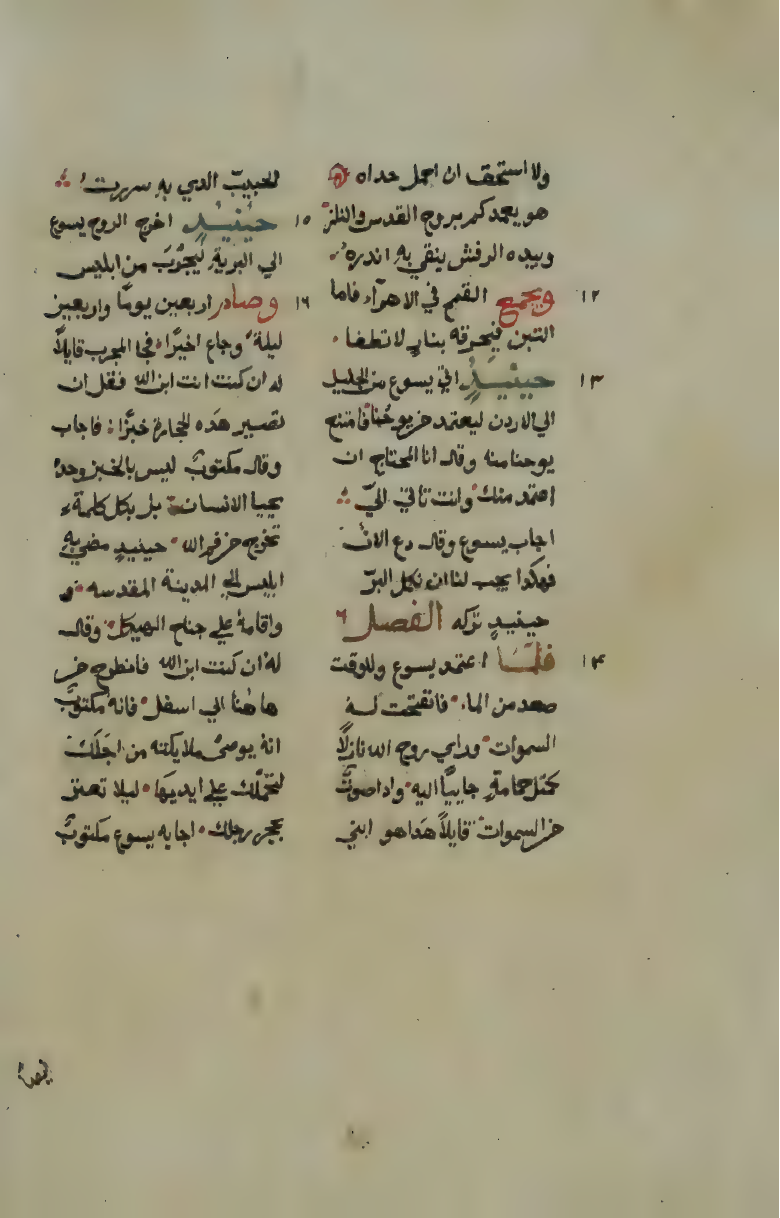 ولا استحق ان احمل حداه
هو يعمدكم بروح القدس والنار
وبيده الرفش ينقي به اندره
١٢ ويجمع القمح في الاهرآء فاما
التبن فيحرقه بنارٍ لا تطفا
١٣ حينيدٍ اتي يسوع من الجليل
الي الاردن ليعتمد من يوحنا فامتنع
يوحنا منه وقال انا المحتاج ان
اعتمد منك وانت تاتي اليّ
اجاب يسوع وقال دع الان
فهكدا يجب لنا ان نكمل البرّ
حينيدٍ تركه الفصل ٦
١٤ فلمّا اعتمد يسوع وللوقت
صعد من الماء فانفتحت له
السموات وراي روح الله نازلاً
كمثل حمامةٍ جاييًا اليه وادا صوتٌ
من السموات قايلاً هدا هو ابني
الحبيب الدي به سررت
١٥ حينيدٍ اخرج الروح يسوع
الي البرية ليجرب من ابليس
١٦ وصام اربعين يومًا واربعين
ليلة وجاع اخيرًا فجا المجرب قايلاً
له ان كنت انت ابن الله فقل ان
تصير هده الحجارة خبزًا فاجاب
وقال مكتوبٌ ليس بالخبز وحده
يحيا الانسان بل بكل كلمة
تخرج من فم الله حينيدٍ مضي به
ابليس الي المدينة المقدسه و
واقامه علي جناح الهيكل وقال
له ان كنت ابن الله فانطرح من
هاهنا الي اسفل فانه مكتوبٌ
انه يوصي ملايكته من اجلك
لتحملك علي ايديها ليلا تعتر
بحجر رجلك اجابه يسوع مكتوبٌ